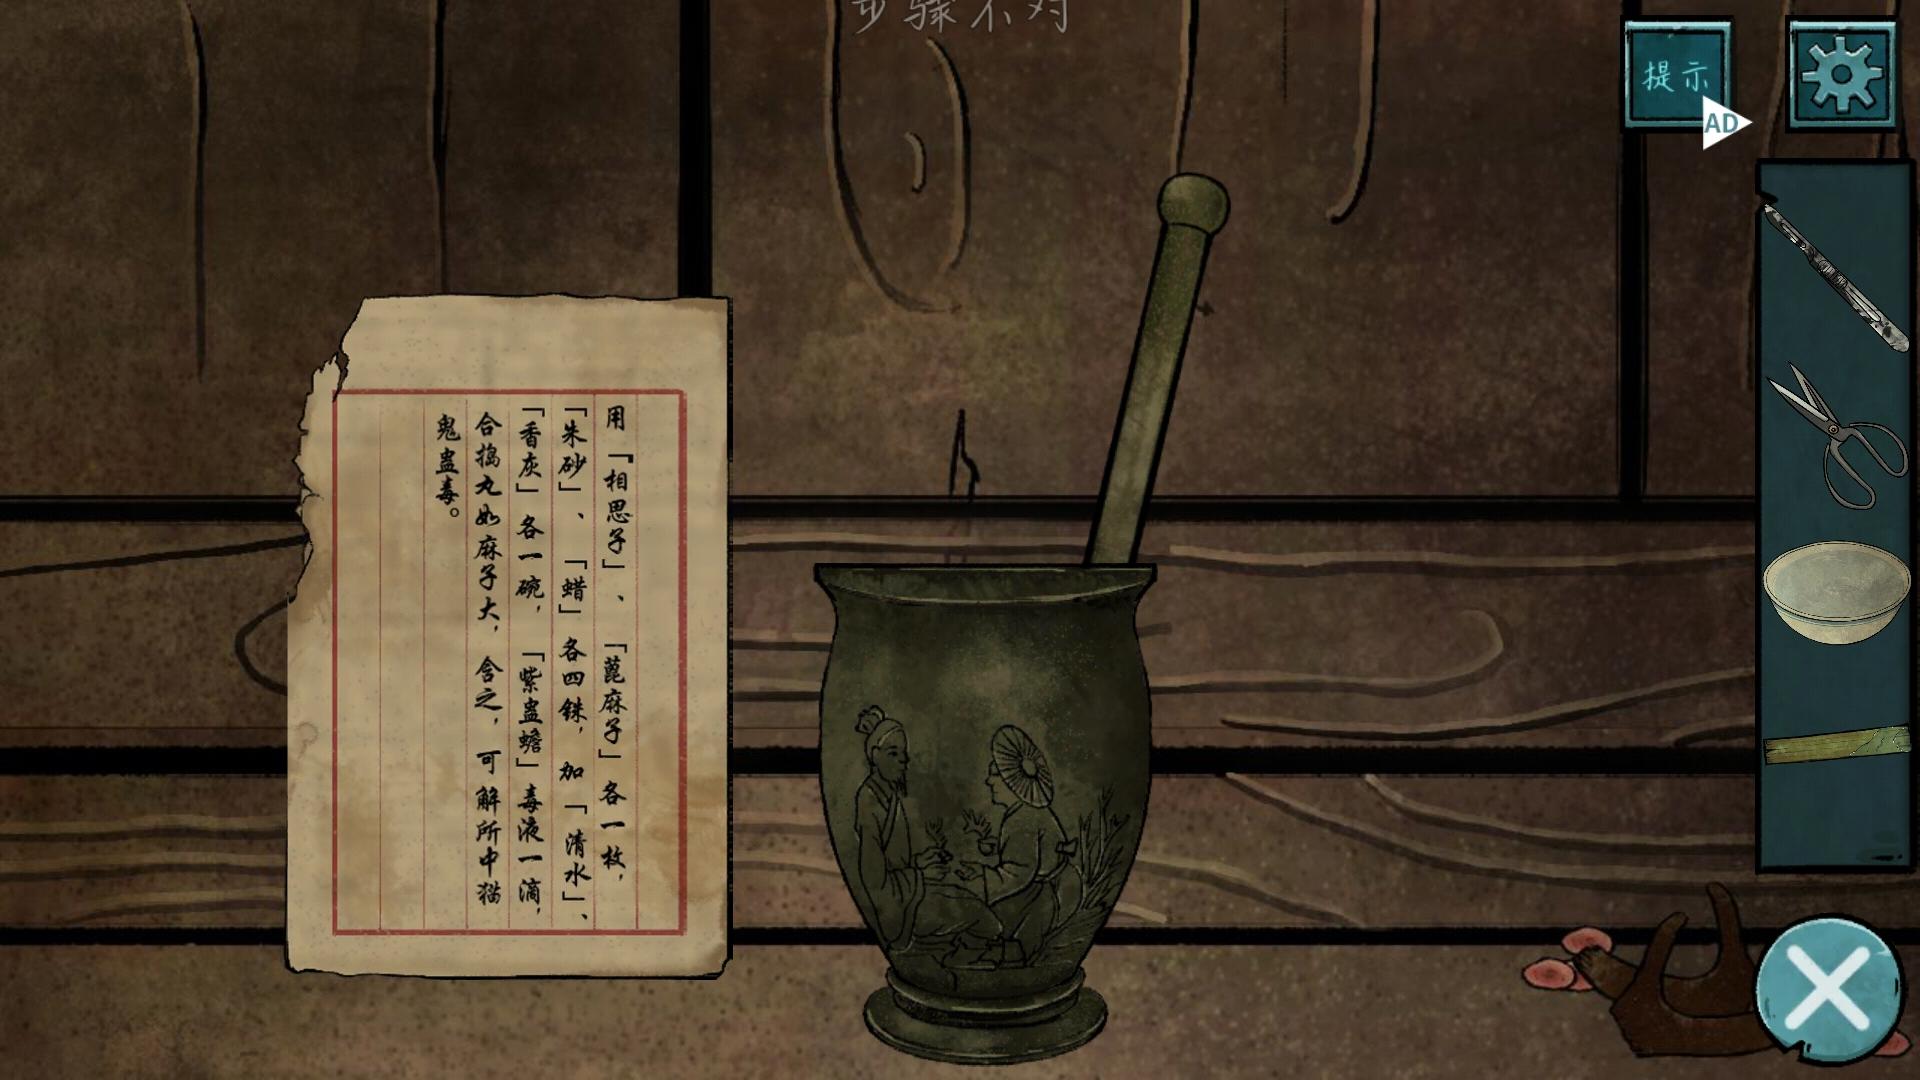 步骤不对
提示
AD
用「相思子」、「蓖麻子」各一枚，
「朱砂」、「蜡」各四铢，加「清水」、
「香灰」各一碗，「紫蛊蟾」毒液一滴，
合捣丸如麻子大，含之，可解所中猫
鬼蛊毒。